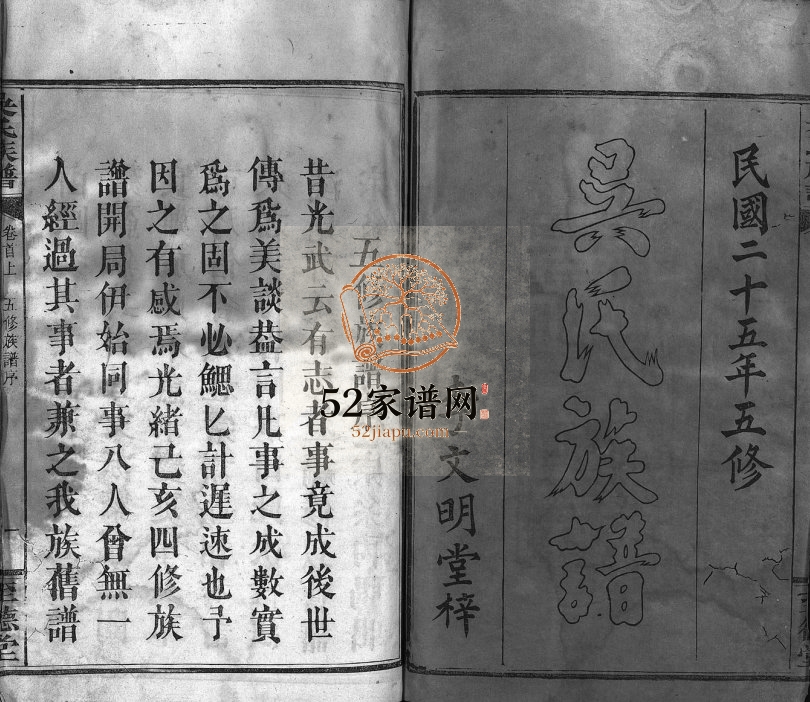 民國二十五年五修
吳氏族譜
文明堂梓
五修族譜
昔光武云有志者事竟成後世
傳爲美談葢言凡事之成數實
爲之固不必鰓匕計遲速也予
因之有感焉光緒己亥四修族
譜開局伊始同事八人曾無一
人經過其事者兼之我族舊譜
吳氏族譜
卷首上
五修族譜序
一
至德堂
52家谱网
52jiapu.com